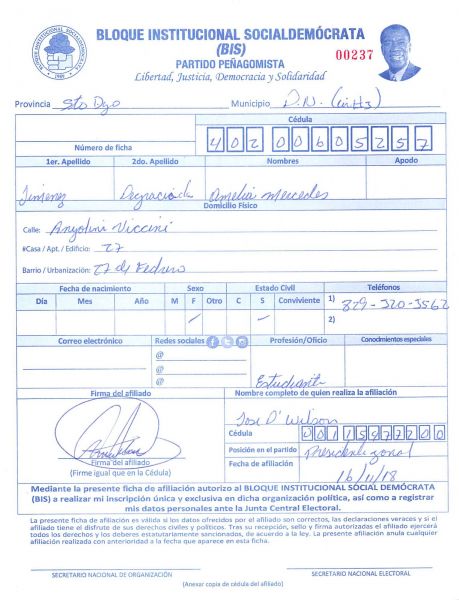 BLOQUE INSTITUCIONAL SOCIALDEMÓCRATA
(BIS)
00237
PARTIDO PEÑAGOMISTA
Libertad, Justicia, Democracia y Solidaridad
Provincia Sto Dgo Municipio D.N.
Cédula
Número de ficha 402 0060525 7
1er. Apellido 2do. Apellido Nombres Apodo
Jimenez Amelia Mercedes
Domicilio Físico
Calle: Viccini
#Casa / Apt. / Edificio: 27
Barrio / Urbanización: 27 de Febrero
Fecha de nacimiento Sexo Estado Civil Teléfonos
Día Mes Año M F Otro C S Conviviente 1) 829-320-3562
2)
Correo electrónico Redes sociales Profesión/Oficio Conodmientos especiales
@
@
@ Estudiante
Firma del afiliado Nombre completo de quien realiza la afiliación
Jose D' Wilson
Cédula 00115977200
Posición en el partido Presidente zonal
Firma del afiliado Fecha de afiliación
(Firme igual que en la Cédula) 16/11/18
Mediante la presente ficha de afiliación autorizo al BLOQUE INSTITUCIONAL SOCIAL DEMÓCRATA
(BIS) a realizar mi inscripción única y exclusiva en dicha organización política, así como a registrar
mis datos personales ante la Junta Central Electoral.
La presente ficha de afiliación es válida si los datos ofrecidos por el afiliado son correctos, las declaraciones veraces y si el
afiliado tiene el disfrute de sus derechos civiles y políticos. Tras su recepción, sello y firma autorizadas el afiliado ejercerá
todos los derechos y los deberes estatutariamente sancionados, de acuerdo a la ley. La presente afiliación anula cualquier
afiliación realizada con anterioridad a la fecha que aparece en esta ficha.
SECRETARIO NACIONAL DE ORGANIZACIÓN SECRETARIO NACIONAL ELECTORAL
(Anexar copia de cédula del afiliado)